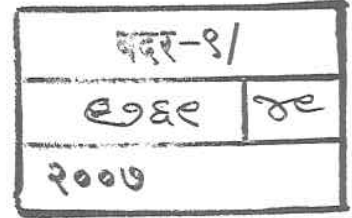 बदर-९/
९७६९ ४९
२००७